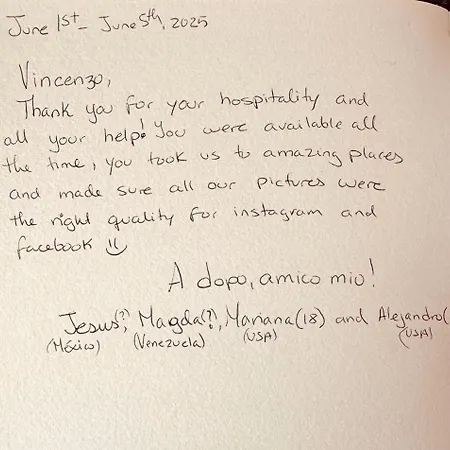 June 1st - June 5th, 2025
Vincenzo,
Thank you for your hospitality and
all your help! You were available all
the time, you took us to amazing places
and made sure all our pictures were
the right quality for instagram and
facebook :)
A dopo, amico mio!
Jesus(?), Magda(?), Mariana(18) and Alejandro(
(México) (Venezuela) (USA) (USA)